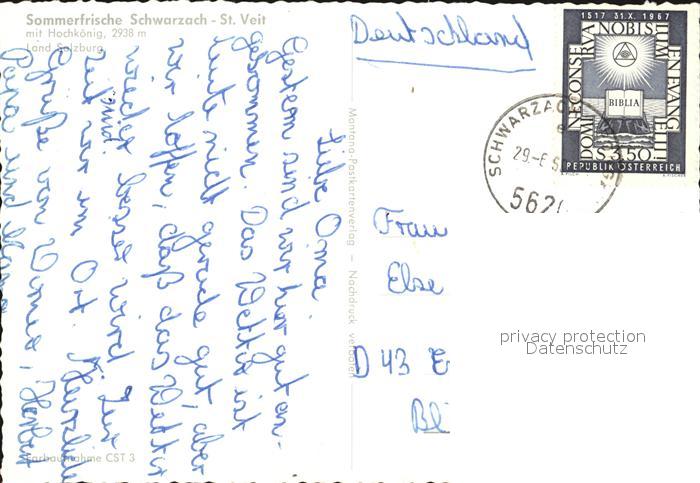 Sommerfrische Schwarzach - St. Veit
mit Hochkönig, 2938 m
Land Salzburg
Liebe Oma!
Gestern sind wir hier gut an-
gekommen. Das Wetter ist
heute nicht gerade gut, aber
wir hoffen, daß das Wetter
wieder besser wird. Zur
Zeit sind wir im Ort. Herzliche
Grüße von Werner, Herbert
Papa und Mama
Farbaufnahme CST 3
Montanos-Postkartenverlag — Nachdruck verboten
Deutschland
Frau
Else
D 43 E
Bl
1517 31.X. 1967
NOBIS
BIBLIA
S 3.50
REPUBLIK ÖSTERREICH
SCHWARZACH
29.-6
562
privacy protection
Datenschutz